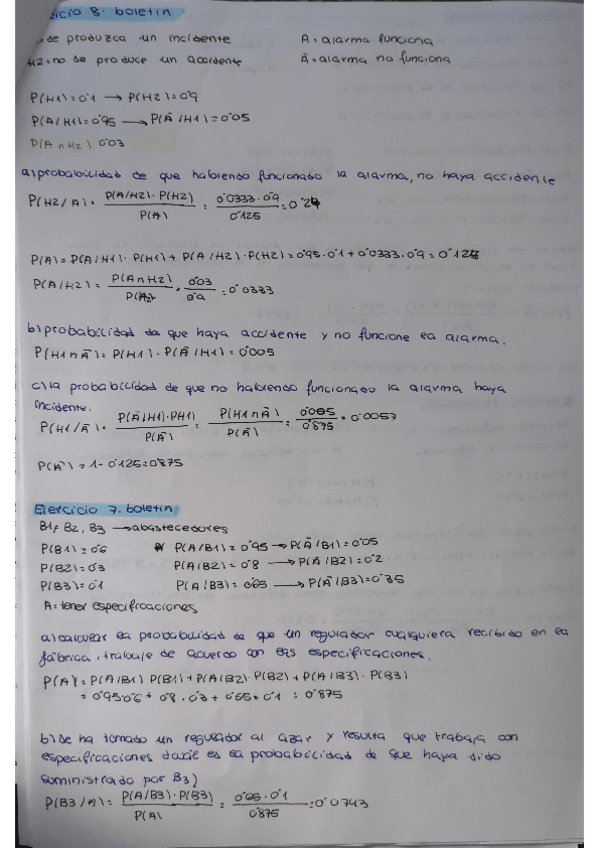 Ejercicio 8. boletin
se produzca un incidente A = alarma funciona
H2 = no se produce un accidente Ā = alarma no funciona
P(H1) = 0'1 → P(H2) = 0'9
P(A/H1) = 0'95 → P(Ā/H1) = 0'05
P(A∩H2) 0'03
a) probabilidad de que habiendo funcionado la alarma, no haya accidente
P(H2/A) = P(A/H2) · P(H2) / P(A) = 0'0333 · 0'9 / 0'125 = 0'24
P(A) = P(A/H1) · P(H1) + P(A/H2) · P(H2) = 0'95 · 0'1 + 0'0333 · 0'9 = 0'125
P(A/H2) = P(A∩H2) / P(H2) = 0'03 / 0'9 = 0'0333
b) probabilidad de que haya accidente y no funcione la alarma.
P(H1∩Ā) = P(H1) · P(Ā/H1) = 0'005
c) la probabilidad de que no habiendo funcionado la alarma haya
incidente.
P(H1/Ā) = P(Ā/H1) · P(H1) / P(Ā) = P(H1∩Ā) / P(Ā) = 0'005 / 0'875 = 0'0057
P(Ā) = 1 - 0'125 = 0'875
Ejercicio 7. boletin
B1, B2, B3 → abastecedores
P(B1) = 0'6 P(A/B1) = 0'95 → P(Ā/B1) = 0'05
P(B2) = 0'3 P(A/B2) = 0'8 → P(Ā/B2) = 0'2
P(B3) = 0'1 P(A/B3) = 0'65 → P(Ā/B3) = 0'35
A = tener especificaciones
a) calcular la probabilidad de que un regulador cualquiera recibido en la
fábrica, trabaje de acuerdo con las especificaciones.
P(A) = P(A/B1) P(B1) + P(A/B2) · P(B2) + P(A/B3) · P(B3)
= 0'95 · 0'6 + 0'8 · 0'3 + 0'65 · 0'1 = 0'875
b) se ha tomado un regulador al azar y resulta que trabaja con
especificaciones ¿cuál es la probabilidad de que haya sido
suministrado por B3)
P(B3/A) = P(A/B3) · P(B3) / P(A) = 0'65 · 0'1 / 0'875 = 0'0743